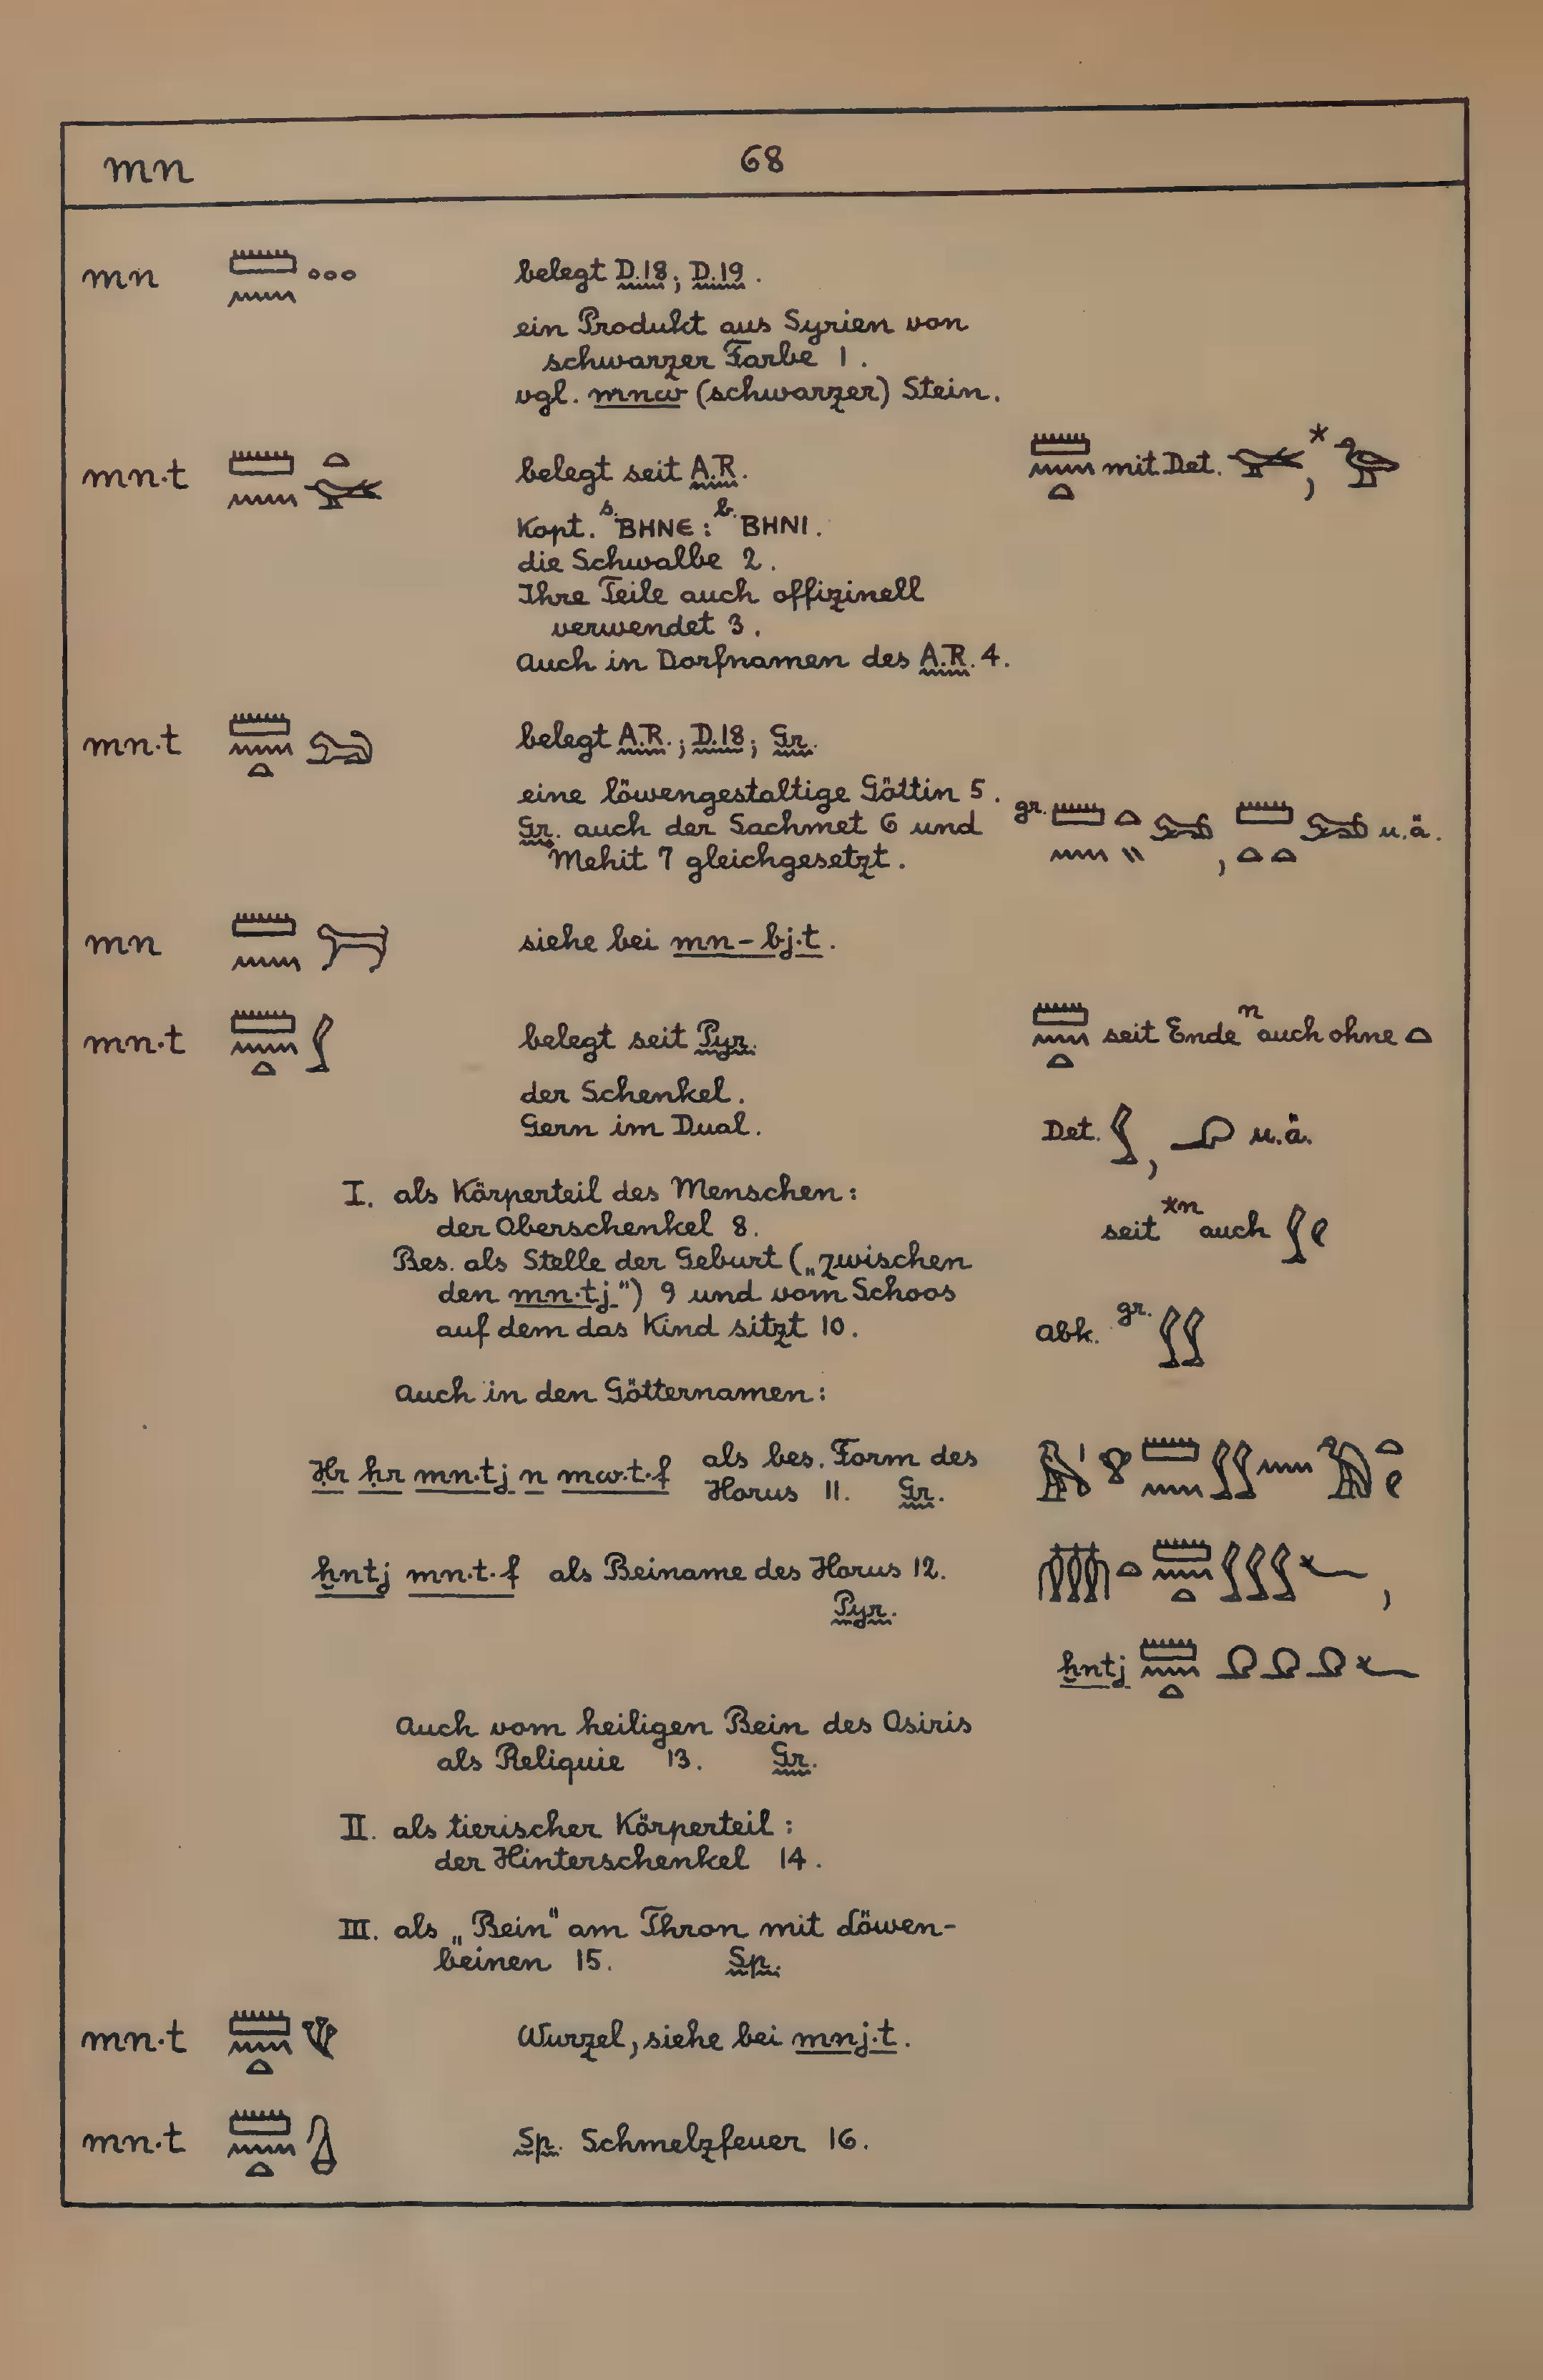 mn 68
mn 𓏠𓈖𓈒𓈒𓈒 belegt D.18; D.19.
ein Produkt aus Syrien von
schwarzer Farbe 1.
vgl. mnw (schwarzer) Stein.
mn·t 𓏠𓈖𓏏𓅨 belegt seit A.R. 𓏠𓈖𓏏 mit Det. 𓅨, *𓅭
Kopt. s. ΒΗΝЄ: b. ΒΗΝΙ.
die Schwalbe 2.
Ihre Teile auch offizinell
verwendet 3.
Auch in Dorfnamen des A.R. 4.
mn·t 𓏠𓈖𓏏𓃭 belegt A.R.; D.18; Gr.
eine löwengestaltige Göttin 5.
Gr. auch der Sachmet 6 und gr. 𓏠𓈖𓏏𓏭𓃭, 𓏠𓏏𓏏𓃭 u.ä.
Mehit 7 gleichgesetzt.
mn 𓏠𓈖𓃡 siehe bei mn-bj·t.
mn·t 𓏠𓈖𓏏𓂾 belegt seit Pyr. 𓏠𓈖𓏏 seit Ende n auch ohne 𓏏
der Schenkel.
Gern im Dual. Det. 𓂾, u.ä.
I. als Körperteil des Menschen:
der Oberschenkel 8. seit *n auch 𓂾𓄹
Bes. als Stelle der Geburt („zwischen
den mn·tj") 9 und vom Schoos
auf dem das Kind sitzt 10. Abk. gr. 𓂾𓂾
Auch in den Götternamen:
Ḥr ḥr mn·tj n mw·t·f als bes. Form des
Horus 11. Gr.
ḫntj mn·t·f als Beiname des Horus 12. 𓏃𓏏𓏠𓈖𓏏𓂾𓂾𓂾𓆑,
Pyr.
ḫntj 𓏠𓈖𓏏 𓆑
Auch vom heiligen Bein des Osiris
als Reliquie 13. Gr.
II. als tierischer Körperteil:
der Hinterschenkel 14.
III. als „Bein" am Thron mit Löwen-
beinen 15. Sp.
mn·t 𓏠𓈖𓏏𓆰 Wurzel, siehe bei mnj·t.
mn·t 𓏠𓈖𓏏𓊮 Sp. Schmelzfeuer 16.